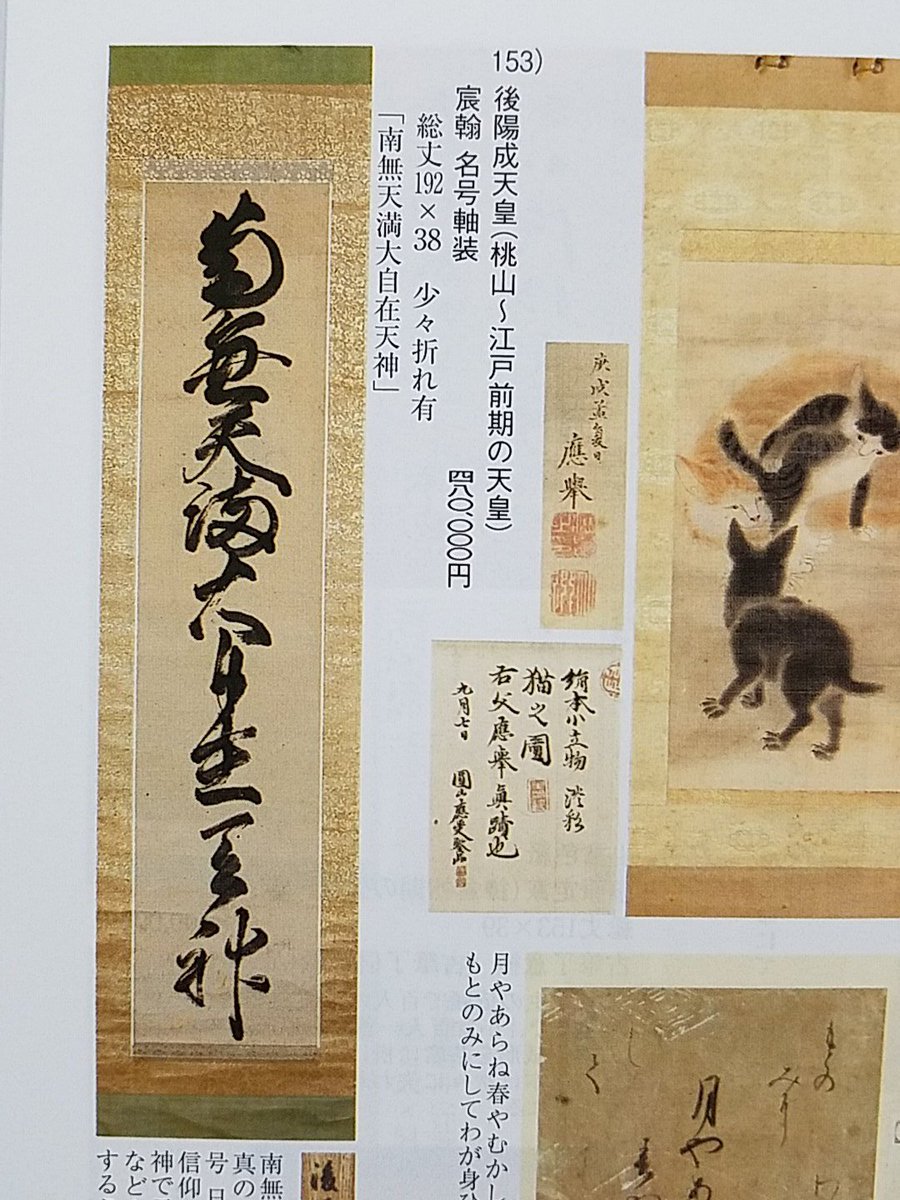 153)
後陽成天皇(桃山〜江戸前期の天皇)
宸翰 名号軸装
四八〇、〇〇〇円
総丈192×38 少々折れ有
「南無天満大自在天神」
南無天満大自在天神
應舉
絹本小立物 淡彩
猫之圖
右父應舉眞蹟也
九月七日
月やあらね春やむかし
もとのみにしてわが身ひ
月やあ
南無
真の
号日
信仰
神で
など
する
後